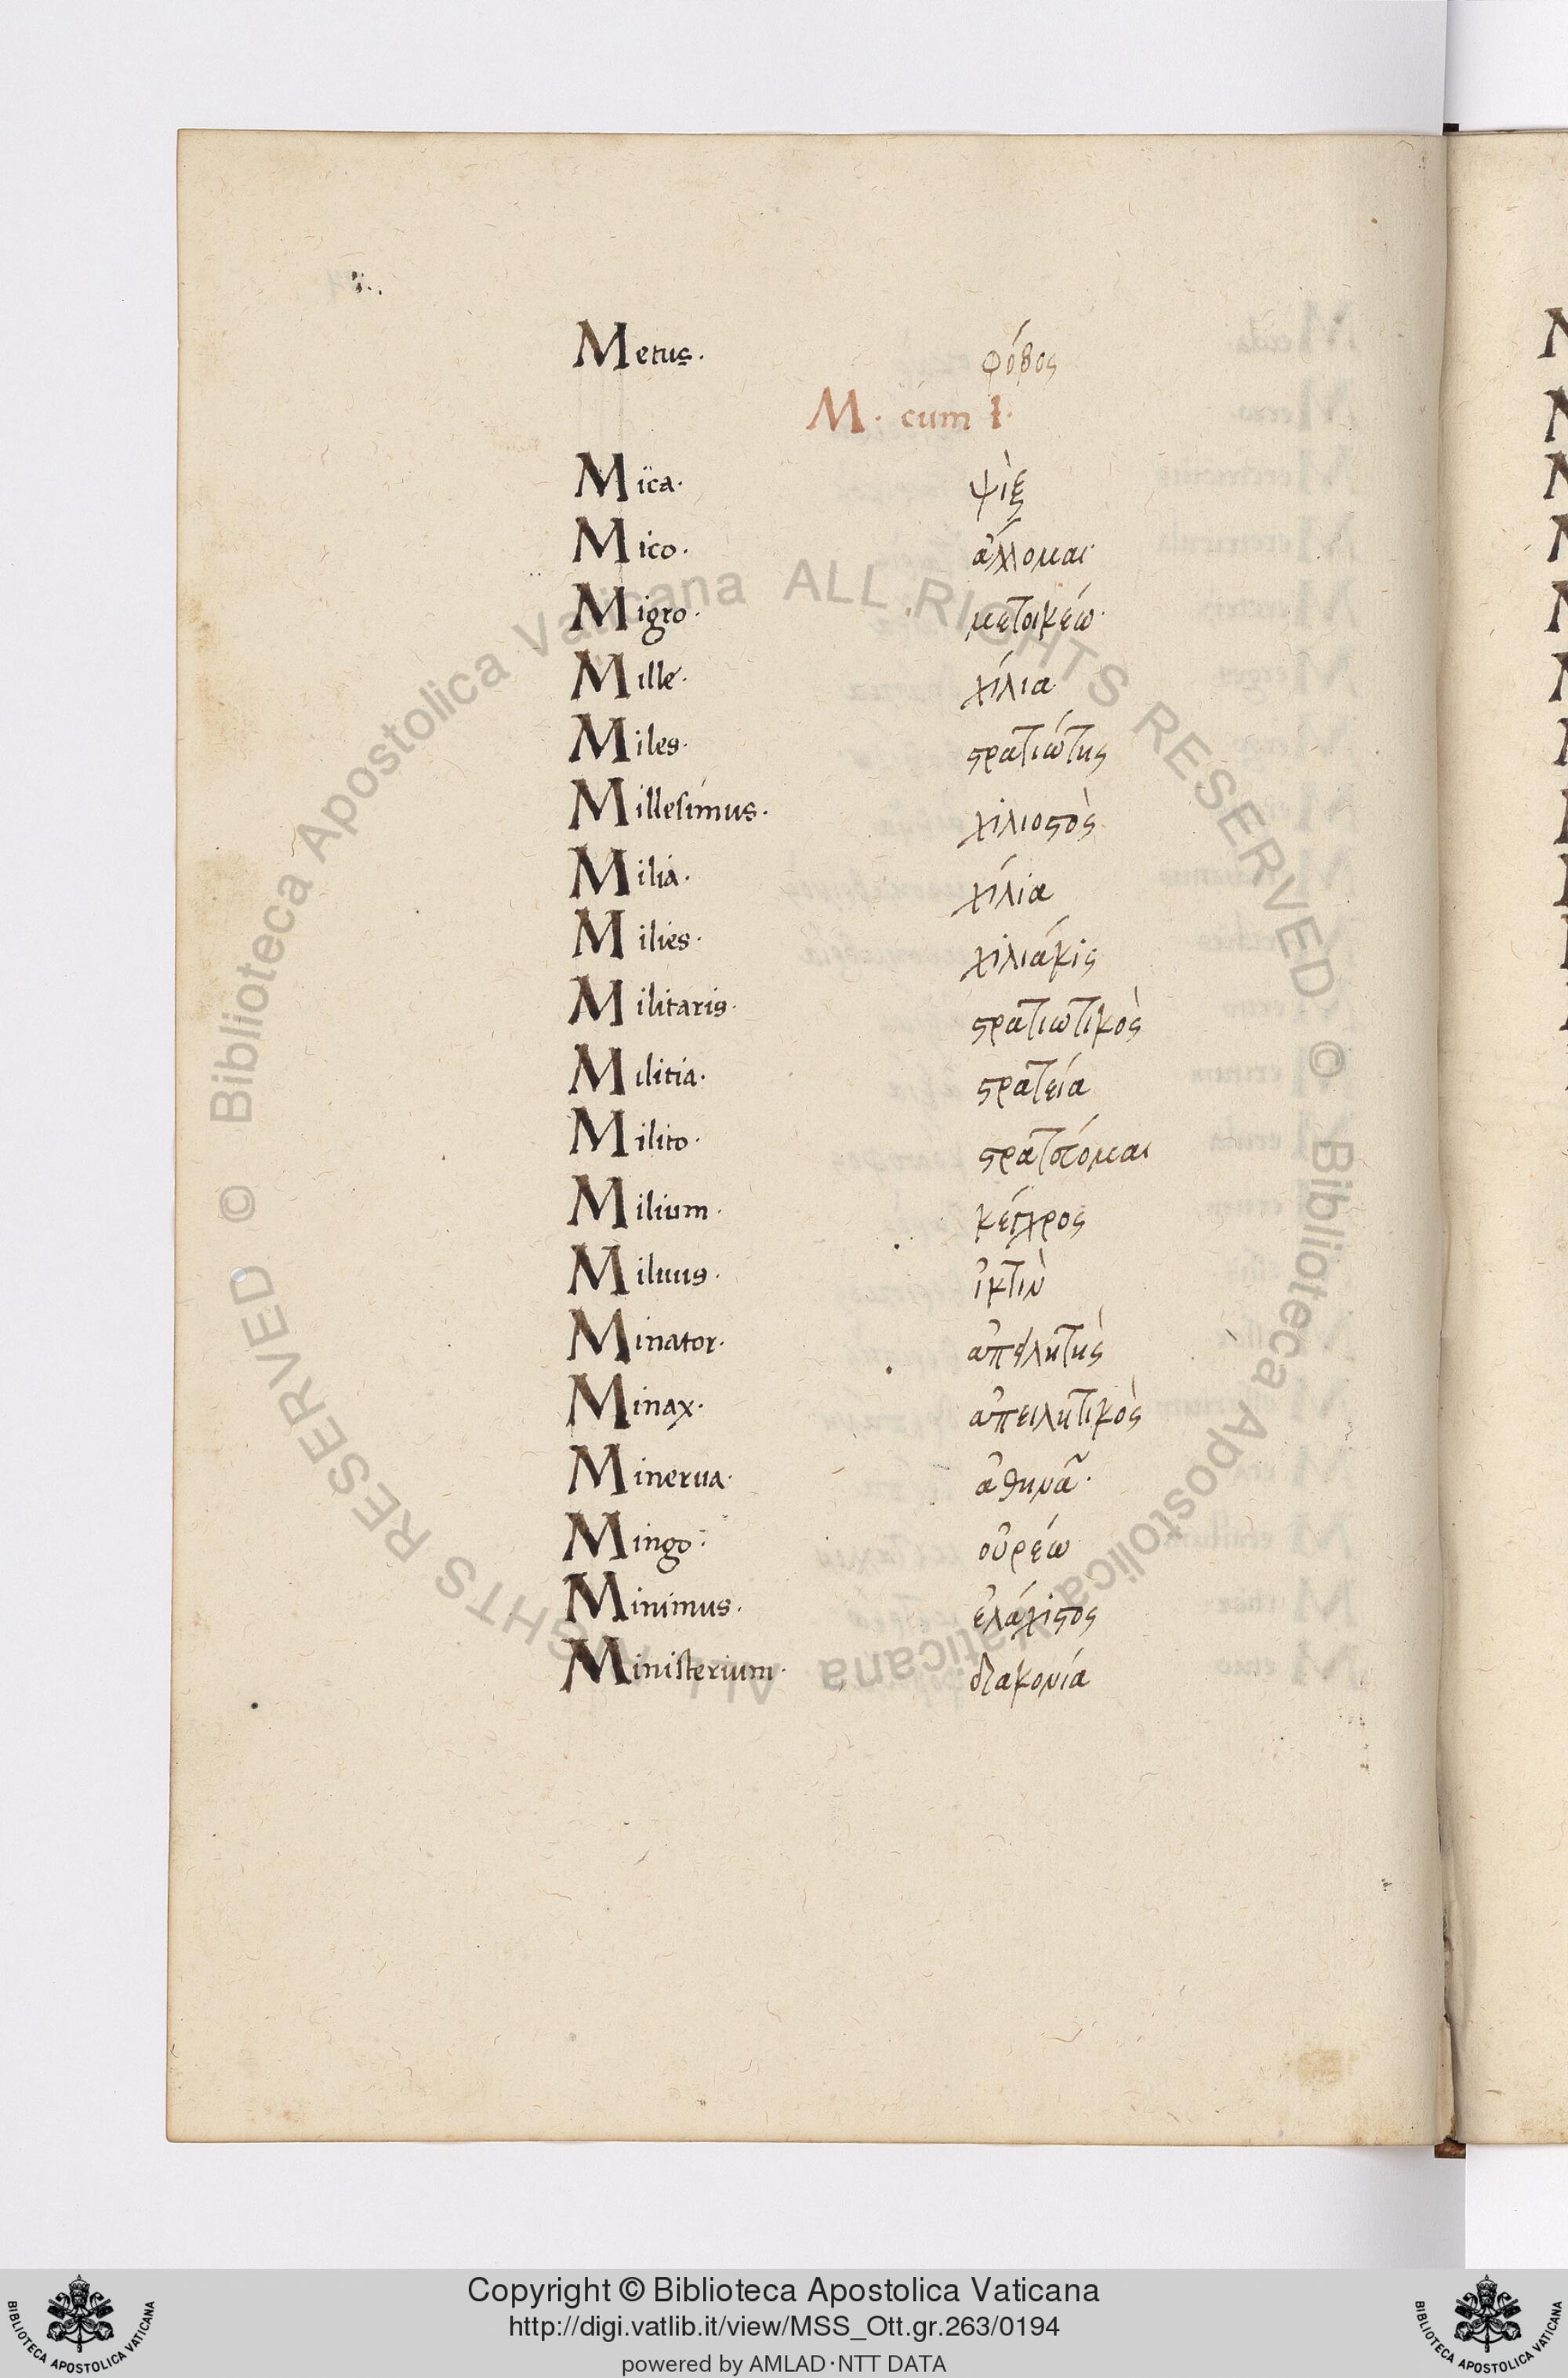 Metus. φόβος
M. cum I.
Mica. ψὶξ
Mico. ἅλλομαι
Migro. μετοικέω
Mille. χίλια
Miles. στρατιώτης
Millesimus. χιλιοστὸς
Milia. χίλια
Milies. χιλιάκις
Militaris. στρατιωτικὸς
Militia. στρατεία
Milito. στρατεύομαι
Milium. κέγχρος
Miluus. ἰκτὶν
Minator. ἀπειλητὴς
Minax. ἀπειλητικὸς
Minerua. ἀθηνᾶ.
Mingo. οὐρέω
Minimus. ἐλάχιστος
Ministerium. διακονία
© Biblioteca Apostolica Vaticana ALL RIGHTS RESERVED © Biblioteca Apostolica Vaticana ALL RIGHTS RESERVED
Copyright © Biblioteca Apostolica Vaticana
http://digi.vatlib.it/view/MSS_Ott.gr.263/0194
powered by AMLAD·NTT DATA
BIBLIOTECA APOSTOLICA VATICANA
BIBLIOTECA APOSTOLICA VATICANA